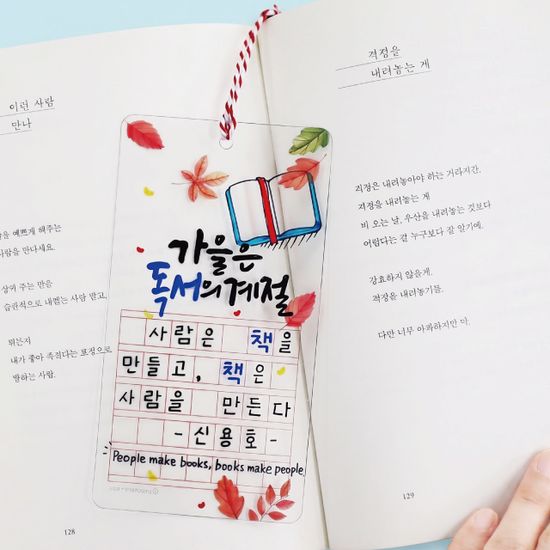 이런 사람
만나
예쁘게 해주는
사람을 만나세요.
주는 만을
습관적으로 내뱉는 사람 말고,
뭐든지
내가 좋아 죽겠다는 표정으로
말하는 사람.
128
가을은
독서의 계절
사람은 책을
만들고, 책은
사람을 만든다
- 신용호 -
People make books, books make people.
걱정을
내려놓는 게
걱정은 내려놓아야 하는 거라지만,
걱정을 내려놓는 게
비 오는 날, 우산을 내려놓는 것보다
어렵다는 걸 누구보다 잘 알기에.
강요하지 않을게.
걱정을 내려놓기를.
다만 너무 아파하지만 마.
129